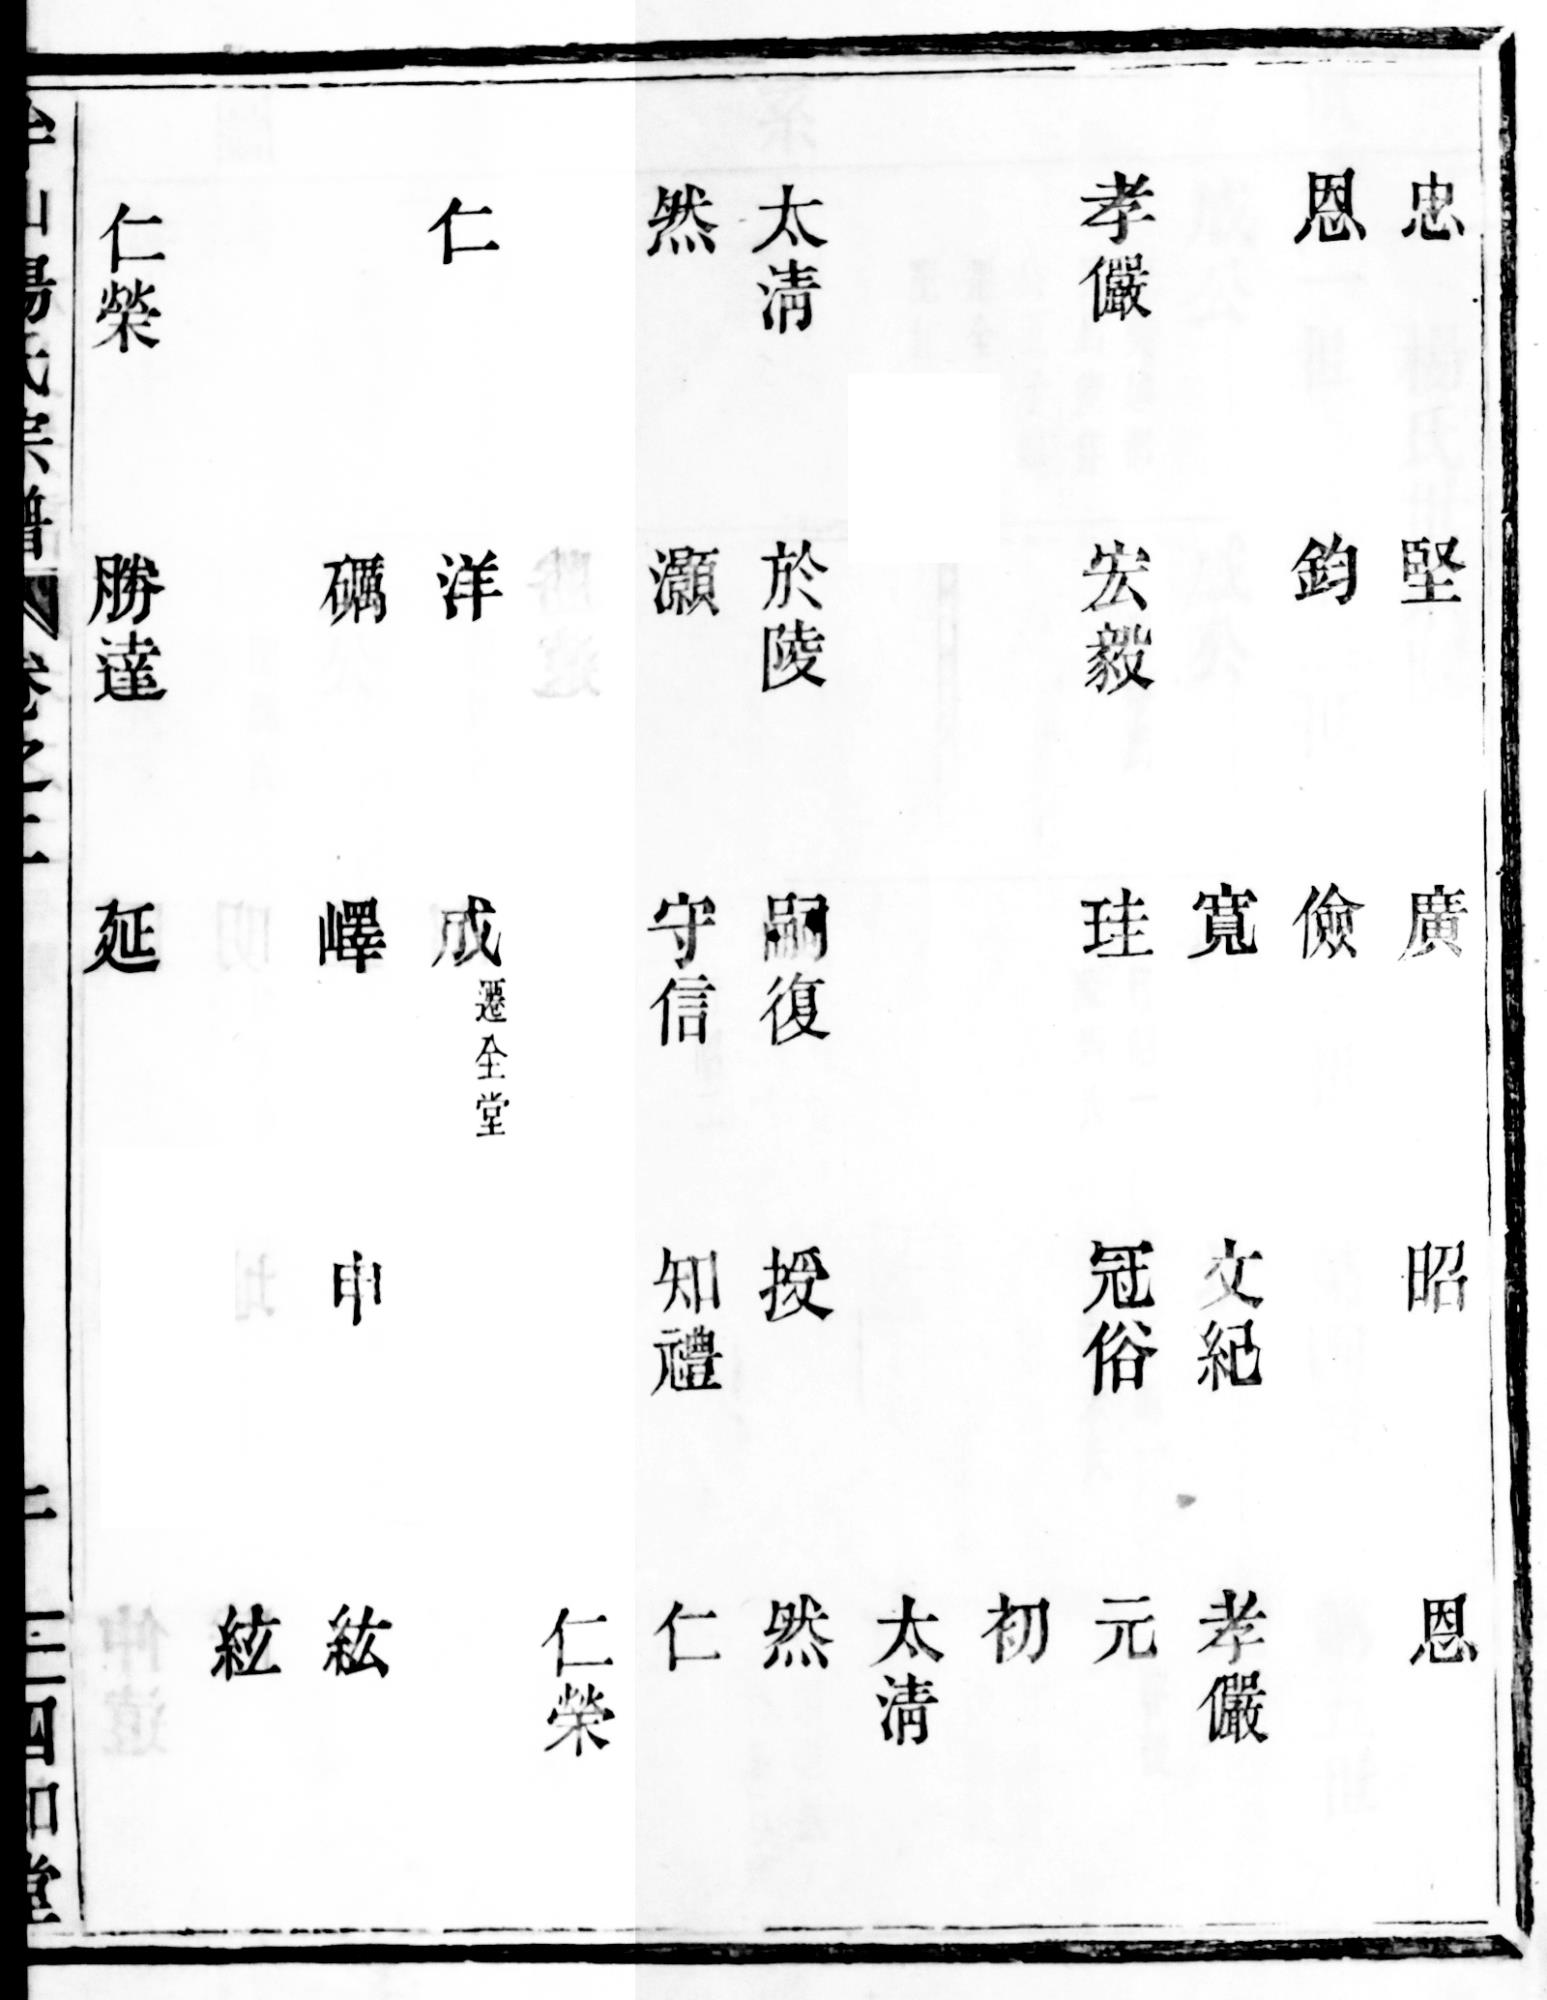 忠 堅 廣 昭 恩
恩 鈞 儉
寬 文紀 孝儼
孝儼 宏毅 珪 冠俗 元
初
太清
太清 於陵 嗣復 授 然
然 灝 守信 知禮 仁
仁榮
仁 洋 成 遷全堂
礪 嶧 申 紘
絃
仁榮 勝達 延
山楊氏宗譜 卷之二 四知堂